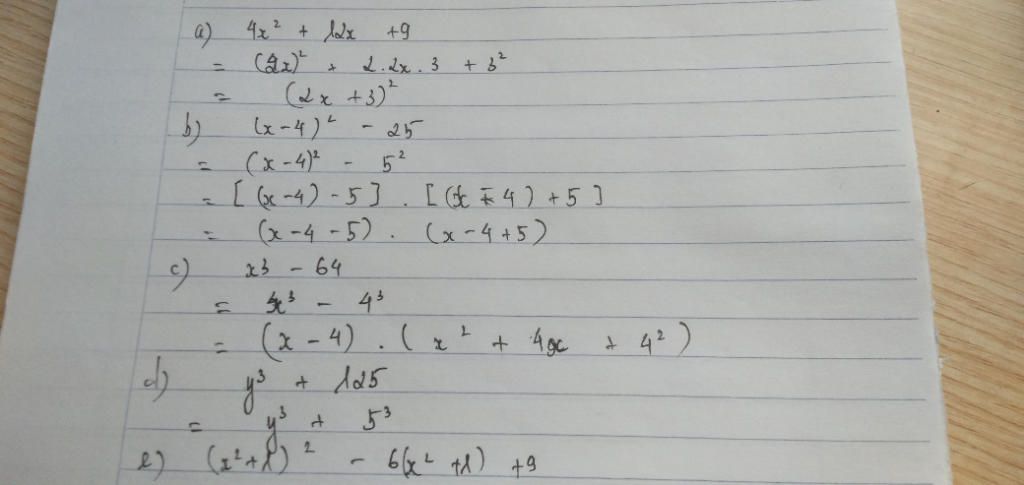 a) 4x² + 12x + 9
= (2x)² + 2.2x.3 + 3²
= (2x + 3)²
b) (x-4)² - 25
= (x-4)² - 5²
= [(x-4) - 5] . [(x - 4) + 5]
= (x - 4 - 5) . (x - 4 + 5)
c) x³ - 64
= x³ - 4³
= (x - 4) . (x² + 4x + 4²)
d) y³ + 125
= y³ + 5³
e) (x² + 1)² - 6(x² + 1) + 9